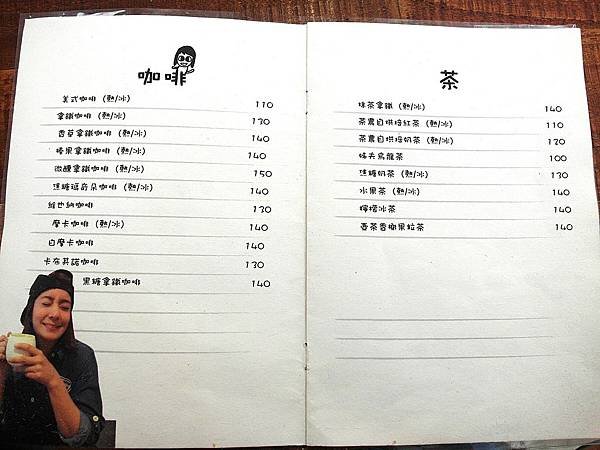 咖啡
美式咖啡 (熱/冰) 110
拿鐵咖啡 (熱/冰) 130
香草拿鐵咖啡 (熱/冰) 140
榛果拿鐵咖啡 (熱/冰) 140
微醺拿鐵咖啡 (熱/冰) 150
焦糖瑪奇朵咖啡 (熱/冰) 140
維也納咖啡 130
摩卡咖啡 (熱/冰) 140
白摩卡咖啡 140
卡布其諾咖啡 130
黑糖拿鐵咖啡 140
茶
抹茶拿鐵 (熱/冰) 140
茶農自烘焙紅茶 (熱/冰) 110
茶農自烘焙奶茶 (熱/冰) 120
姊夫烏龍茶 100
焦糖奶茶 (熱/冰) 130
水果茶 (熱/冰) 140
檸檬冰茶 140
百香香榭果粒茶 140